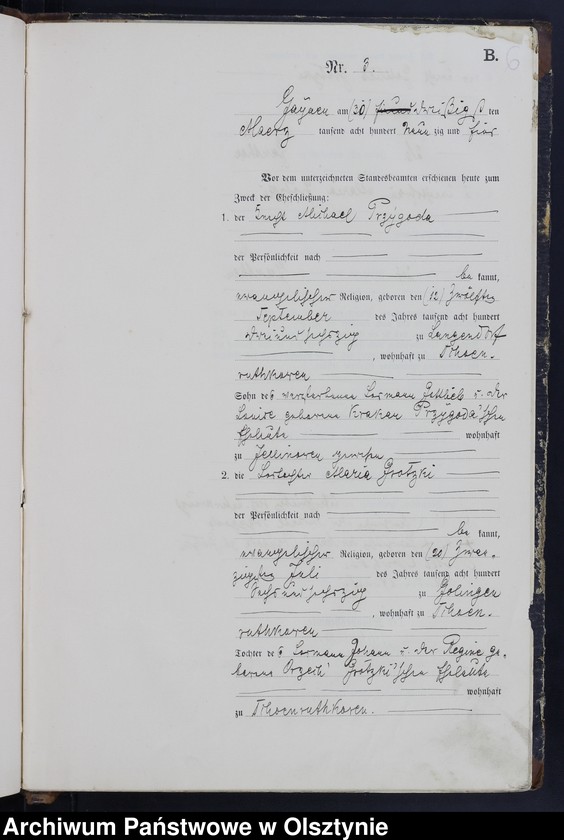 B.
6
Nr. 3.
Gayden am (30) dreißig sten
Maerz tausend acht hundert neun zig und vier
Vor dem unterzeichneten Standesbeamten erschienen heute zum
Zweck der Eheschließung:
1. der Knecht Michael Przygoda
der Persönlichkeit nach
be kannt,
evangelischer Religion, geboren den (12) zwölften
September des Jahres tausend acht hundert
drei und sechszig zu Langendorf
, wohnhaft zu Schoen-
ruthkowen
Sohn des verstorbenen Losmann Gottlieb u. der
Louise geborene Krakau Przygoda'schen
Eheleute wohnhaft
zu gewesen
2. die Lostochter Maria Grotzki
der Persönlichkeit nach
be kannt,
evangelischer Religion, geboren den (20) zwan-
zigsten Juli des Jahres tausend acht hundert
sechs und sechszig zu
, wohnhaft zu Schoen-
ruthkowen
Tochter des Losmann Johann u. der Regine ge-
borene Orzech' Grotzki'schen Eheleute
wohnhaft
zu Schoenruthkowen.
Archiwum Państwowe w Olsztynie